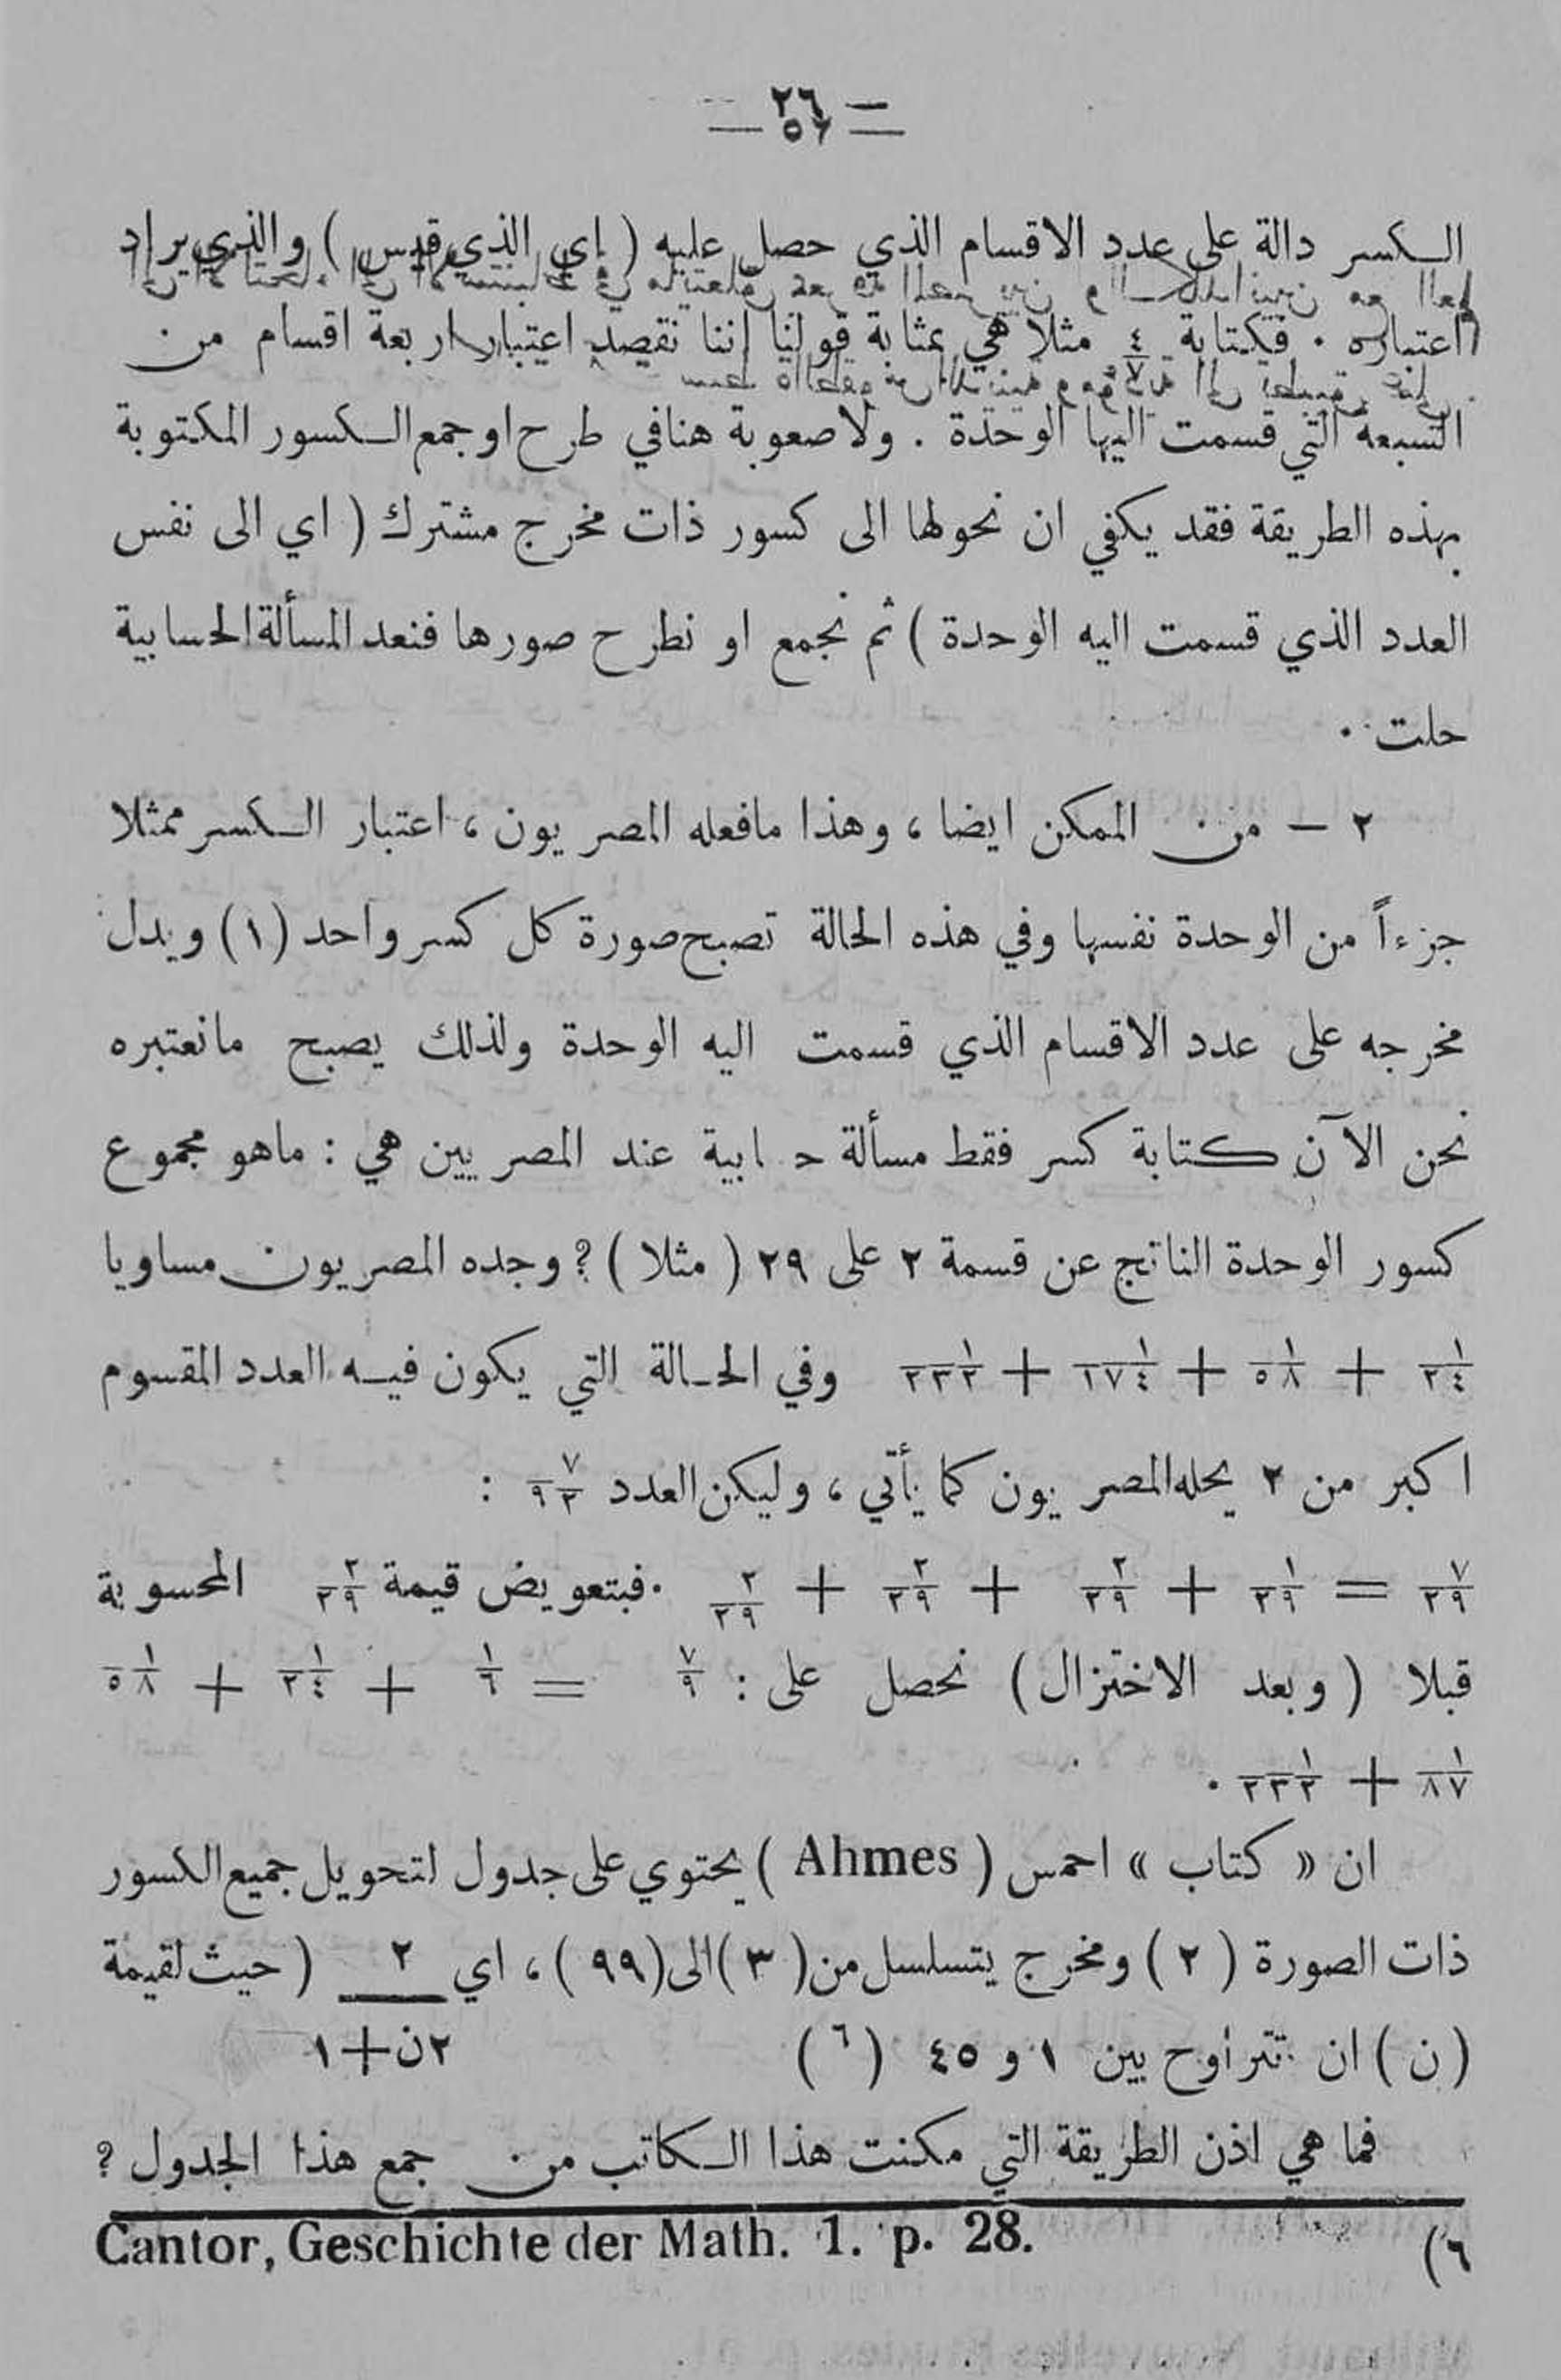 — ٢٦ —
الكسر دالة على عدد الاقسام الذي حصل عليه ( اي الذي قيس ) والذي يراد
اعتباره . فكتابة ٤/٧ مثلا هي بمثابة قولنا اننا نقصد اعتبار اربعة اقسام من
السبعة التي قسمت اليها الوحدة . ولا صعوبة هنا في طرح او جمع الكسور المكتوبة
بهذه الطريقة فقد يكفي ان نحولها الى كسور ذات مخرج مشترك ( اي الى نفس
العدد الذي قسمت اليه الوحدة ) ثم نجمع او نطرح صورها فنعد المسألة الحسابية
حلت .
٢ — من الممكن ايضا ، وهذا مافعله المصريون ، اعتبار الكسر ممثلا
جزءاً من الوحدة نفسها وفي هذه الحالة تصبح صورة كل كسر واحد (١) ويدل
مخرجه على عدد الاقسام الذي قسمت اليه الوحدة ولذلك يصبح مانعتبره
نحن الآن كتابة كسر فقط مسألة ح ابية عند المصريين هي : ماهو مجموع
كسور الوحدة الناتج عن قسمة ٢ على ٢٩ ( مثلا ) ؟ وجده المصريون مساويا
١/٢٤ + ١/٥٨ + ١/١٧٤ + ١/٢٣٢ وفي الحالة التي يكون فيه العدد المقسوم
اكبر من ٢ يحله المصريون كما يأتي ، وليكن العدد ٧/٢٩ :
٧/٢٩ = ١/٢٩ + ٢/٢٩ + ٢/٢٩ + ٢/٢٩ . فبتعويض قيمة ٢/٢٩ المحسوبة
قبلا ( وبعد الاختزال ) نحصل على : ٧/٩ = ١/٦ + ١/٢٤ + ١/٥٨
١/٨٧ + ١/٢٣٢ .
ان « كتاب » احمس ( Ahmes ) يحتوي على جدول لتحويل جميع الكسور
ذات الصورة ( ٢ ) ومخرج يتسلسل من ( ٣ ) الى ( ٩٩ ) ، اي ٢ ( حيث لقيمة
( ن ) ان تتراوح بين ١ و ٤٥ ( ٦ ) ٢ن+١
فما هي اذن الطريقة التي مكنت هذا الكاتب من جمع هذا الجدول ؟
٦) Cantor, Geschichte der Math. 1. p. 28.